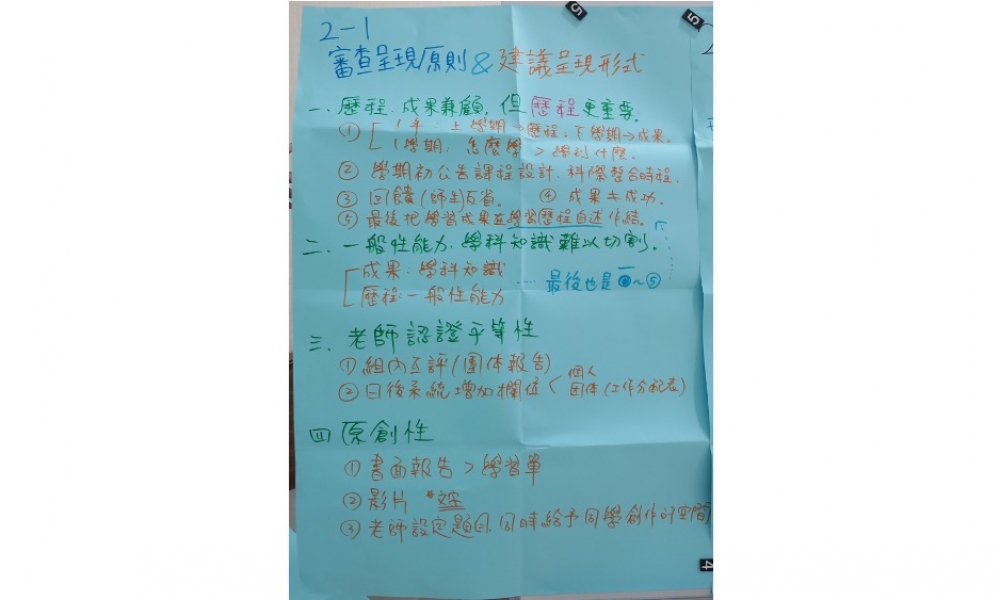 2-1
審查呈現原則 & 建議呈現形式
一、歷程、成果兼顧,但歷程更重要。
① 1年:上學期→歷程;下學期→成果。
1學期:怎麼學 > 學到什麼.
② 學期初公告課程設計、科際整合時程.
③ 回饋(師生)反省。 ④ 成果≠成功.
⑤ 最後把學習成果在學習歷程自述作結。
二、一般性能力、學科知識難以切割。
成果:學科知識
歷程:一般性能力
.... 最後也是 ~⑤
三、老師認證平等性
① 組內互評(團体報告)
② 日後系統增加欄位 < 個人
団体(工作分配表)
四 原創性
① 書面報告 > 學習單
② 影片 *
③ 老師設定題目,同時給予同學創作的空間
5
5
4